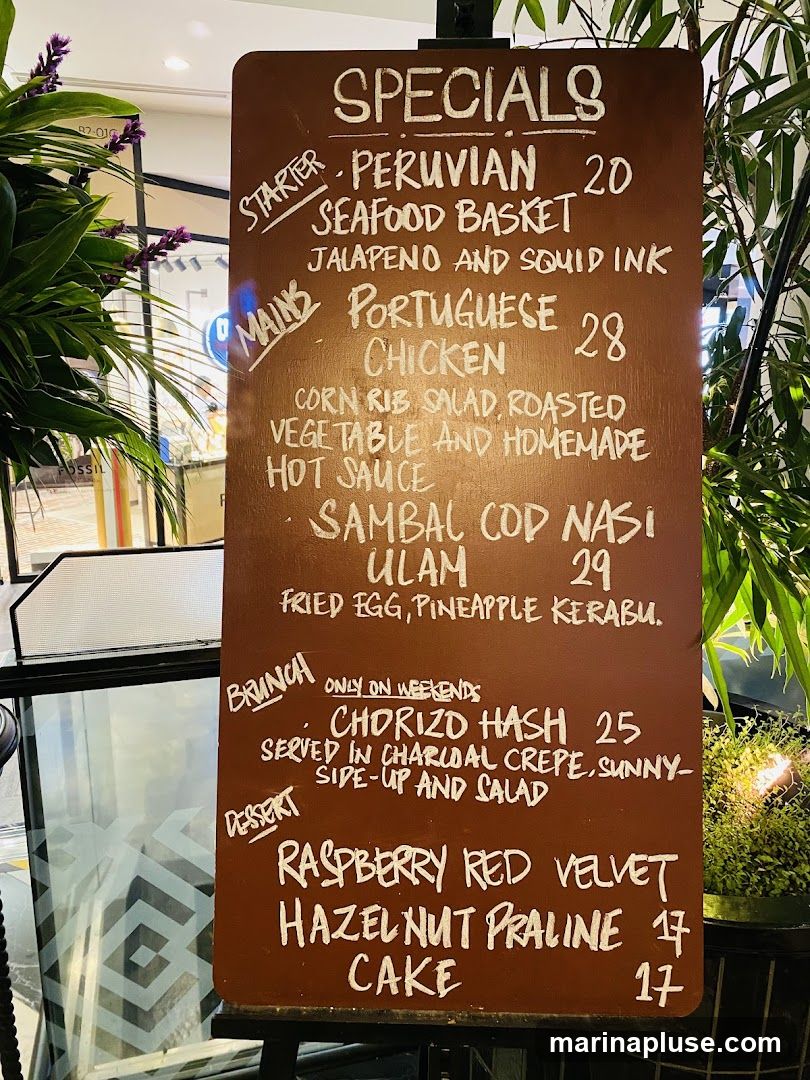 B2-01
SPECIALS
STARTER
· PERUVIAN 20
SEAFOOD BASKET
JALAPENO AND SQUID INK
MAINS
· PORTUGUESE
CHICKEN 28
CORN RIB SALAD, ROASTED
VEGETABLE AND HOMEMADE
HOT SAUCE
· SAMBAL COD NASI
ULAM 29
FRIED EGG, PINEAPPLE KERABU.
BRUNCH ONLY ON WEEKENDS
· CHORIZO HASH 25
SERVED IN CHARCOAL CREPE, SUNNY-
SIDE-UP AND SALAD
DESSERT
RASPBERRY RED VELVET
HAZELNUT PRALINE 17
CAKE 17
FOSSIL
marinapluse.com